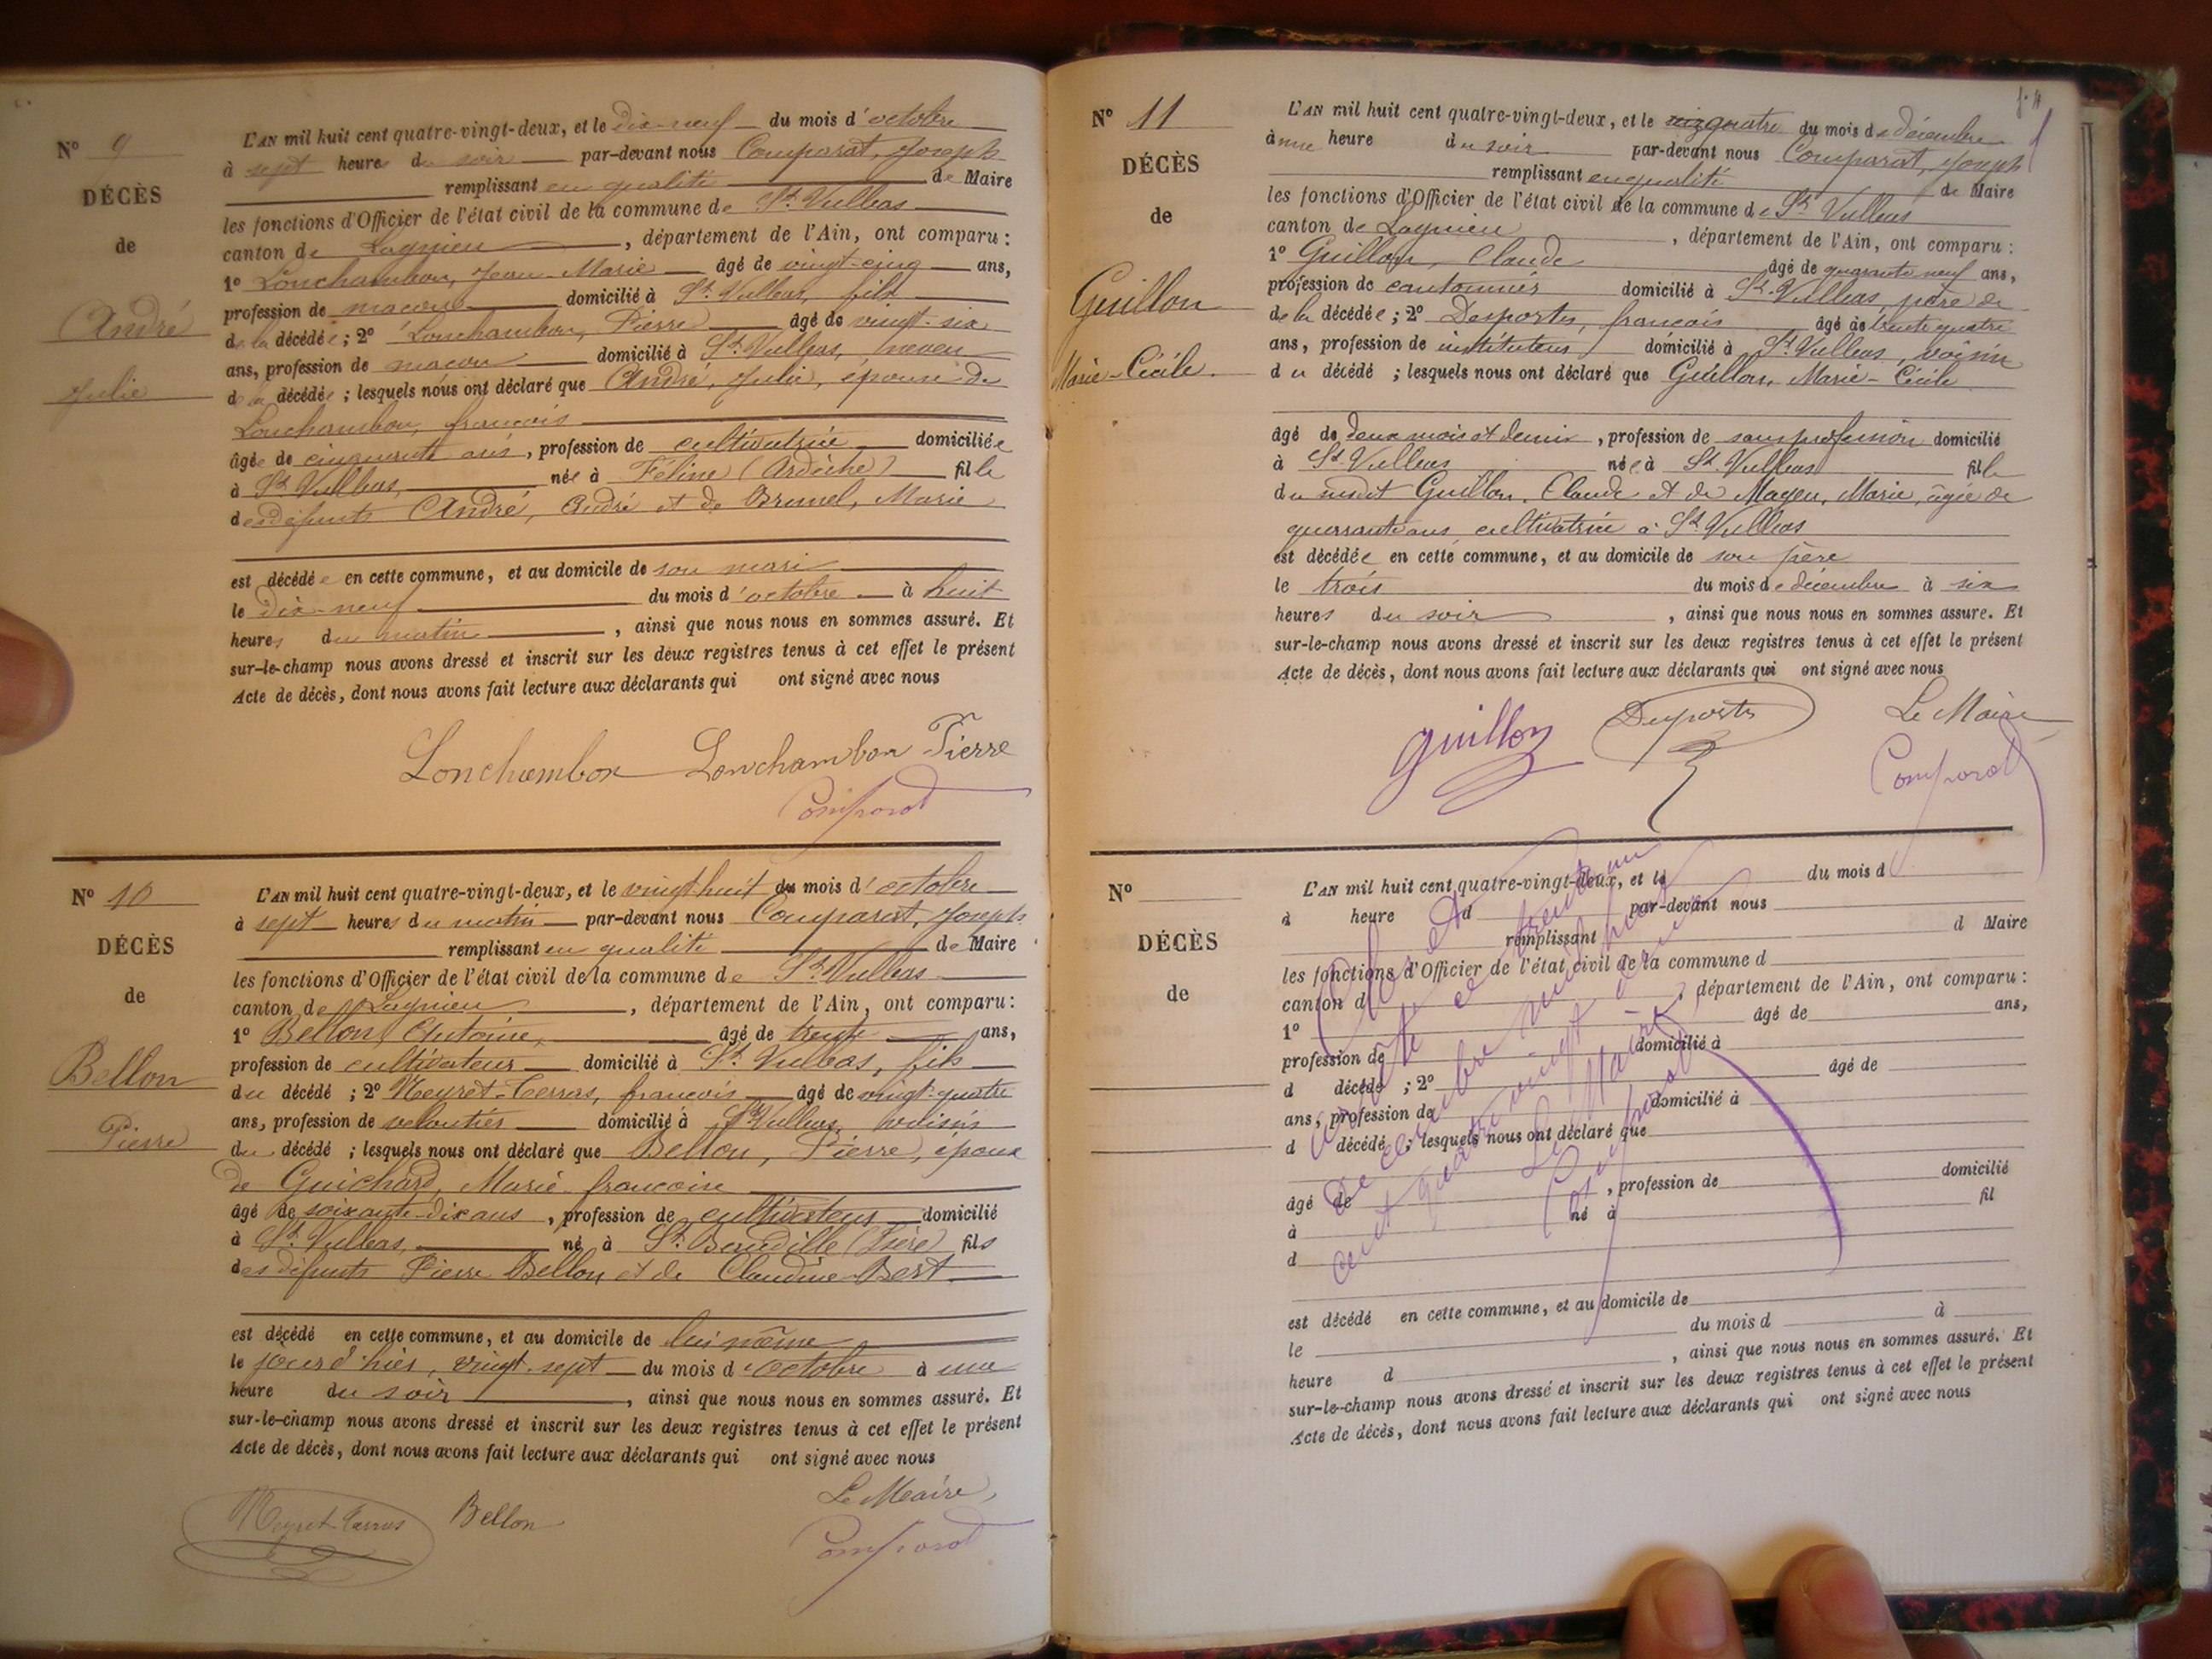 N° 9
DÉCÈS
de
André
Julie
L'AN mil huit cent quatre-vingt-deux, et le dix-neuf du mois d'octobre
à sept heures du soir par-devant nous Comparat, Joseph
remplissant en qualité de Maire
les fonctions d'Officier de l'état civil de la commune de St. Vulbas
canton de Lagnieu, département de l'Ain, ont comparu :
1° Lonchambon, Jean-Marie âgé de vingt-cinq ans,
profession de maçon domicilié à St. Vulbas, fils
de la décédée ; 2° Lonchambon, Pierre âgé de vingt-six
ans, profession de maçon domicilié à St. Vulbas, neveu
de la décédée ; lesquels nous ont déclaré que André, Julie, épouse de
Lonchambon, françois
âgée de cinquante ans, profession de cultivatrice domiciliée
à St. Vulbas, née à Féline (Ardèche) fille
des défunts André, André et de Brunel, Marie
est décédée en cette commune, et au domicile de son mari
le dix-neuf du mois d'octobre à huit
heures du matin, ainsi que nous nous en sommes assuré. Et
sur-le-champ nous avons dressé et inscrit sur les deux registres tenus à cet effet le présent
Acte de décès, dont nous avons fait lecture aux déclarants qui ont signé avec nous
Lonchambon Lonchambon Pierre
Comparat
N° 10
DÉCÈS
de
Bellon
Pierre
L'AN mil huit cent quatre-vingt-deux, et le vingt huit du mois d'octobre
à sept heures du matin par-devant nous Comparat, Joseph
remplissant en qualité de Maire
les fonctions d'Officier de l'état civil de la commune de St. Vulbas
canton de Lagnieu, département de l'Ain, ont comparu :
1° Bellon Antoine, âgé de trente ans,
profession de cultivateur domicilié à St. Vulbas, fils
du décédé ; 2° Meyret-Terras, françois âgé de vingt-quatre
ans, profession de veloutier domicilié à St. Vulbas, voisin
du décédé ; lesquels nous ont déclaré que Bellon, Pierre, époux
de Guichard, Marie-françoise
âgé de soixante-dix ans, profession de cultivateur domicilié
à St. Vulbas, né à St. Baudille (Isère) fils
des défunts Pierre Bellon et de Claudine Bert
est décédé en cette commune, et au domicile de lui même
le jour d'hier, vingt-sept du mois d'octobre à une
heure du soir, ainsi que nous nous en sommes assuré. Et
sur-le-champ nous avons dressé et inscrit sur les deux registres tenus à cet effet le présent
Acte de décès, dont nous avons fait lecture aux déclarants qui ont signé avec nous
Meyret-Terras Bellon Le Maire,
Comparat
f. 4
N° 11
DÉCÈS
de
Guillon
Marie-Cécile.
L'AN mil huit cent quatre-vingt-deux, et le quatre du mois de décembre
à une heure du soir par-devant nous Comparat, Joseph
remplissant en qualité de Maire
les fonctions d'Officier de l'état civil de la commune de St. Vulbas
canton de Lagnieu, département de l'Ain, ont comparu :
1° Guillon, Claude âgé de quarante neuf ans,
profession de cantonnier domicilié à St. Vulbas, père de
de la décédée ; 2° Desportes, françois âgé de trente quatre
ans, profession de instituteur domicilié à St. Vulbas, voisin
du décédé ; lesquels nous ont déclaré que Guillon, Marie-Cécile
âgé de deux mois et demi, profession de sans profession domicilié
à St. Vulbas née à St. Vulbas fille
du susdit Guillon, Claude et de Mayeu, Marie, âgée de
quarante ans, cultivatrice à St. Vulbas
est décédée en cette commune, et au domicile de son père
le trois du mois de décembre à six
heures du soir, ainsi que nous nous en sommes assuré. Et
sur-le-champ nous avons dressé et inscrit sur les deux registres tenus à cet effet le présent
Acte de décès, dont nous avons fait lecture aux déclarants qui ont signé avec nous
guillon Desportes Le Maire
Comparat
N°
DÉCÈS
de
L'AN mil huit cent quatre-vingt-deux, et le du mois d
à heure d par-devant nous
remplissant d Maire
les fonctions d'Officier de l'état civil de la commune d
canton d, département de l'Ain, ont comparu :
1° âgé de ans,
profession de domicilié à
d décédé ; 2° âgé de
ans, profession de domicilié à
d décédé ; lesquels nous ont déclaré que
âgé de, profession de domicilié
à né à fil
d
est décédé en cette commune, et au domicile de
le du mois d à
heure d, ainsi que nous nous en sommes assuré. Et
sur-le-champ nous avons dressé et inscrit sur les deux registres tenus à cet effet le présent
Acte de décès, dont nous avons fait lecture aux déclarants qui ont signé avec nous
Clos et
arrêté le trente un
décembre mil huit
cent quatre-vingt-deux
Le Maire
Comparat